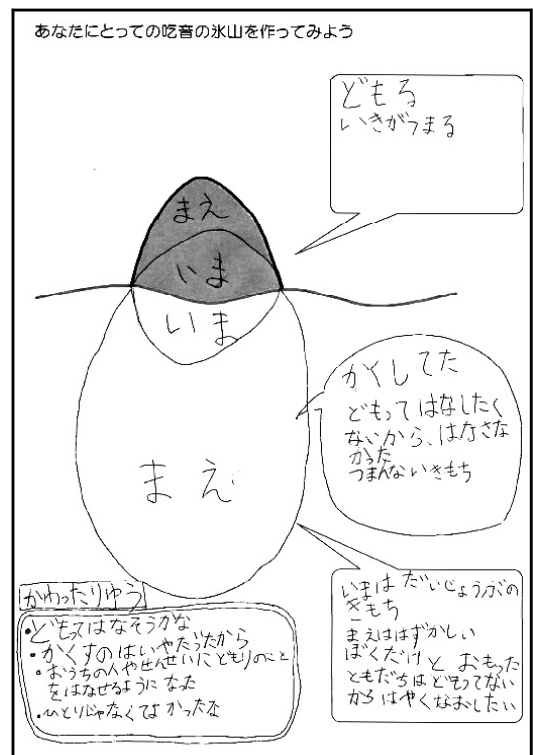 あなたにとっての吃音の氷山を作ってみよう
どもる
いきがつまる
まえ
いま
いま
まえ
かくしてた
どもってはなしたく
ないから、はなさな
かった
つまんないきもち
いまはだいじょうぶの
きもち
まえははずかしい
ぼくだけとおもった
ともだちはどもってない
からはやくなおしたい
かわったりゆう
・どもってはなそうかな
・かくすのはいやだったから
・おうちの人やせんせいにどもりのこと
をはなせるようになった
・ひとりじゃなくてよかったな